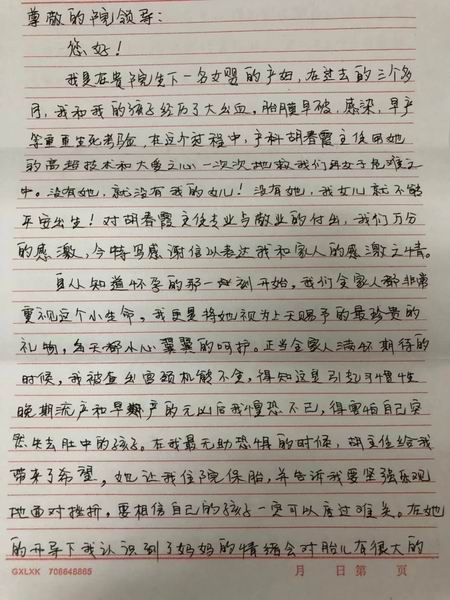 尊敬的院领导：
您好！
我是在贵院生下一名女婴的产妇，在过去的三个多
月，我和我的孩子经历了大出血，胎膜早破，感染，早产
等重重生死考验，在这个过程中，产科胡春霞主任用她
的高超技术和大爱之心一次次地救我们母女于危难之
中。没有她，就没有我的女儿！没有她，我女儿就不能
平安出生！对胡春霞主任专业与敬业的付出，我们万分
的感激，今特写感谢信以表达我和家人的感激之情。
自从知道怀孕的那一刻开始，我们全家人都非常
重视这个小生命，我更是将她视为上天赐予的最珍贵的
礼物，每天都小心翼翼的呵护。正当全家人满怀期待的
时候，我被查出宫颈机能不全，得知这是引起习惯性
晚期流产和早产的元凶后我惶恐不已，很害怕自己突
然失去肚中的孩子。在我最无助恐惧的时候，胡主任给我
带来了希望，她让我住院保胎，并告诉我要坚强乐观
地面对挫折，要相信自己的孩子一定可以度过难关。在她
的开导下我认识到了妈妈的情绪会对胎儿有很大的
GXLXK 708648865
月 日第 页